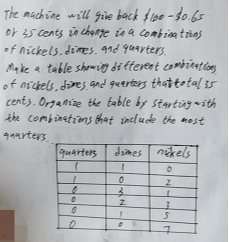 The machine will give back $100-$0.65
or 35 cents in change in a combinations
of nickels. dimes. and quarters.
Make a table showing different combinations
of nickels, dimes, and quarters that total 35
cents. Organize the table by starting with
the combinations that include the most
quarters.
quarters dimes nickels
1 1 0
1 0 2
0 3 1
0 2 3
0 1 5
0 0 7